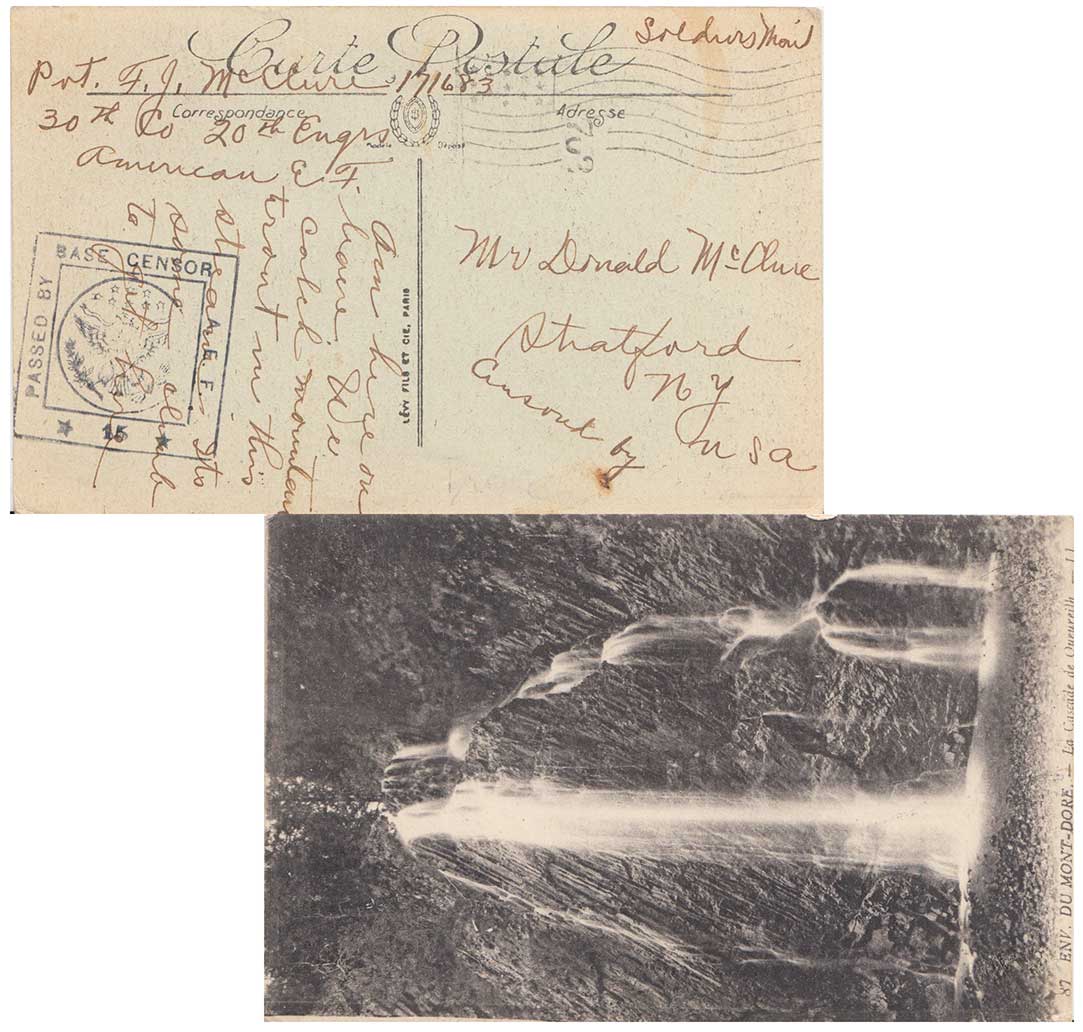 Soldiers Mail
Carte Postale
Pvt. F. J. McClure 171683
Correspondance
Adresse
30th Co 20th Engrs
Modèle Déposé
American E. F.
Am here on
leave. We
catch mountain
trout in this
stream. Its
some climb
to
PASSED BY BASE CENSOR
A.E.F.
15
LÉVY FILS ET CIE, PARIS
Mr Donald McClure
Stratford
N Y
U S A
by
87 ENV. DU MONT-DORE. — La Cascade de Queureilh — LL